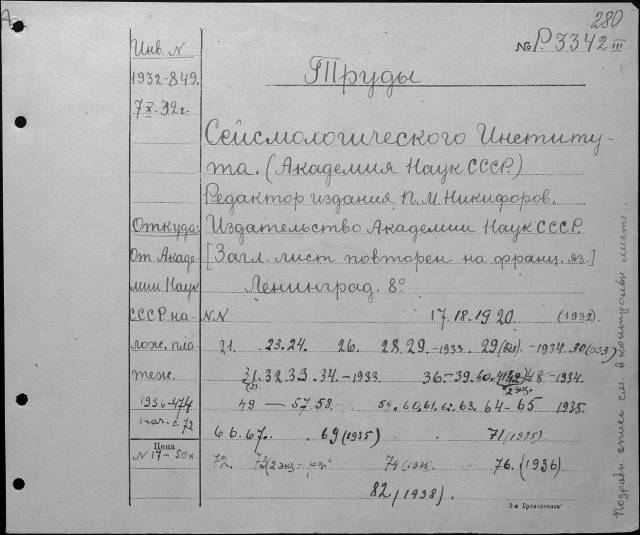 280
№ Р.3342 III
Инв. N
1932-849.
7 X. 32 г.
Труды
Сейсмологического Институ-
та. (Академия Наук СССР.)
Редактор издания П. М. Никифоров.
Откуда:
Издательство Академии Наук СССР.
От Акаде-
[Загл. лист повторен на франц. яз.]
мии Наук
Ленинград. 8°
СССР на-
N.N 17.18.19 20 (1932).
лож. пла-
21. 23.24. 26. 28.29.-1933. 29 -1934. 30 (933)
теж.
31.32.33.34.-1933. 36.-39.40. 48 -1934.
1936-474
49 — 57.58. 59.60,61.62.63. 64-65 1935.
нач. с 72
66.67. 69 (1935) 71 (1935)
Цена
N 17-50к.
72. 73 (2 экз 74 76. (1936)
82, (1938).
3-я Гранпечать
Подробн. опись см. в контрольн. листе.